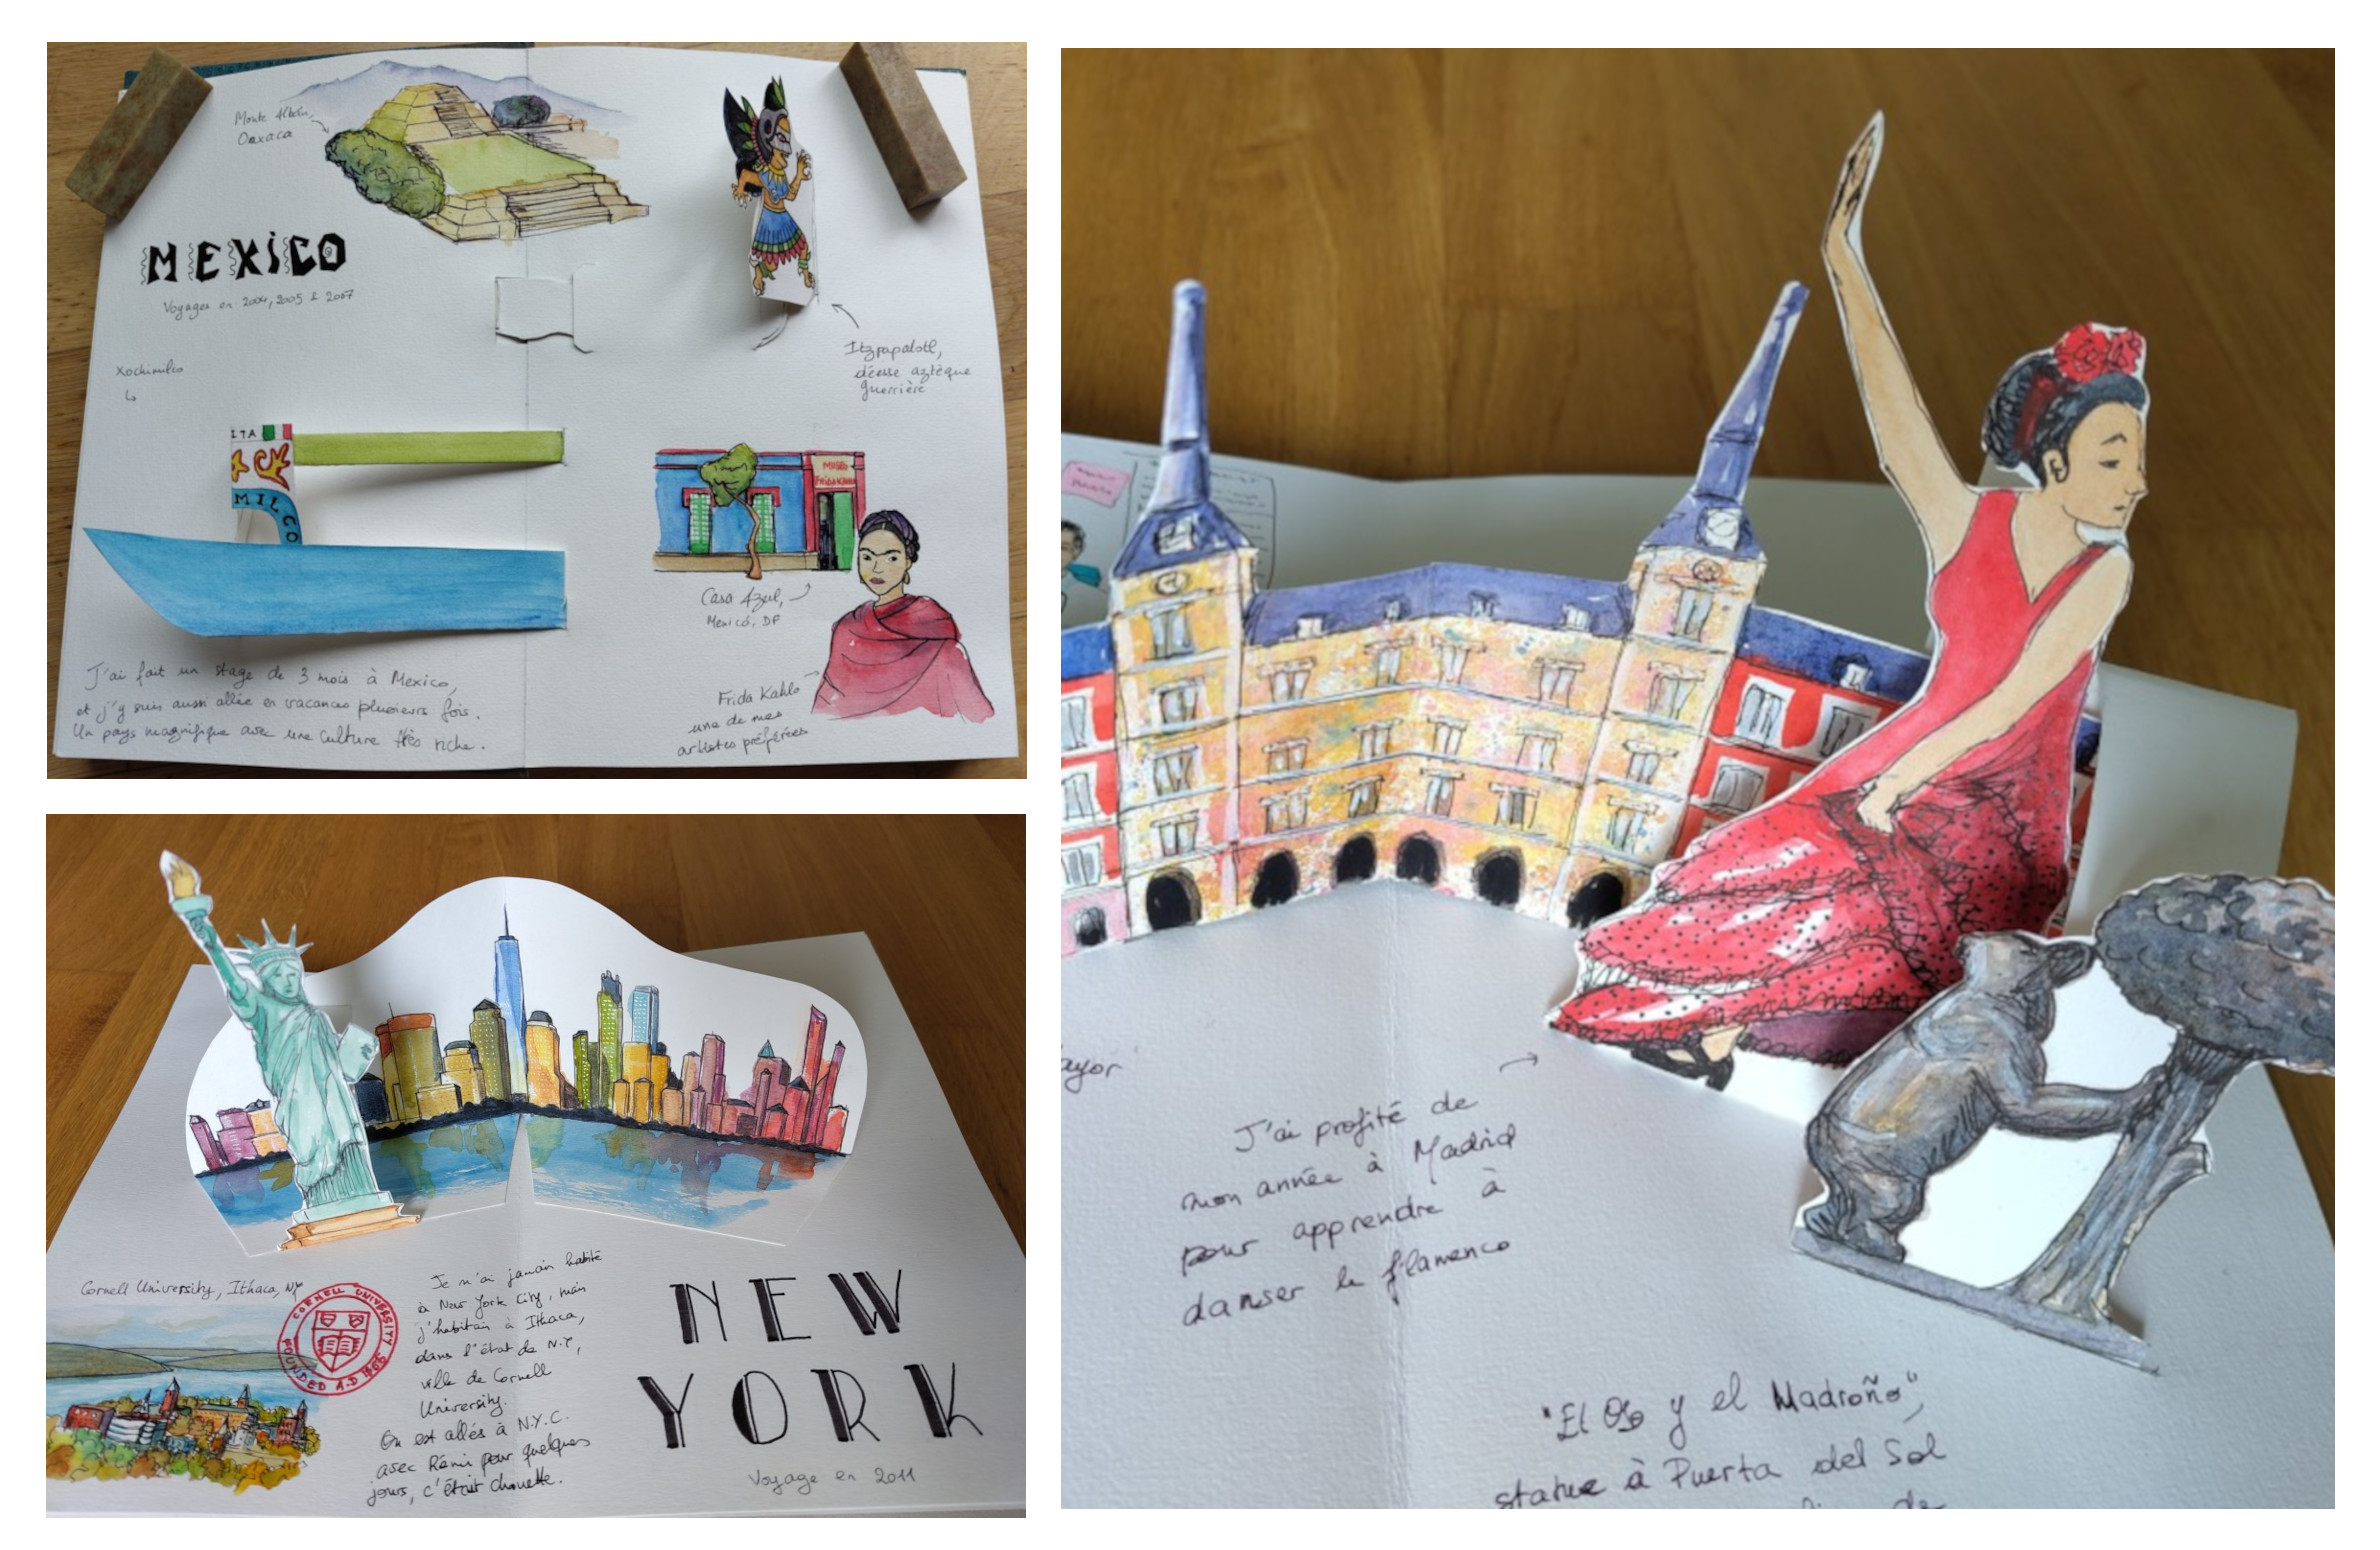 Monte Albán,
Oaxaca
MEXICO
Voyages en 2004, 2005 & 2007
Itzpapalotl,
déesse aztèque
guerrière
Xochimilco
ITA
MILCO
MUSEO
Frida Kahlo
Casa Azul,
Mexicó, DF
Frida Kahlo
une de mes
artistes préférées
J'ai fait un stage de 3 mois à Mexico,
et j'y suis aussi allée en vacances plusieurs fois.
Un pays magnifique avec une culture très riche.
Cornell University, Ithaca, NY
CORNELL UNIVERSITY
FOUNDED A.D 1865
Je n'ai jamais habité
à New York City, mais
j'habitais à Ithaca,
dans l'état de N.Y,
ville de Cornell
University.
On est allés à N.Y.C.
avec Rémi pour quelques
jours, c'était chouette.
NEW
YORK
Voyage en 2011
ayor
J'ai profité de
mon année à Madrid
pour apprendre à
danser le flamenco
"El Oso y el Madroño",
statue à Puerta del Sol
de